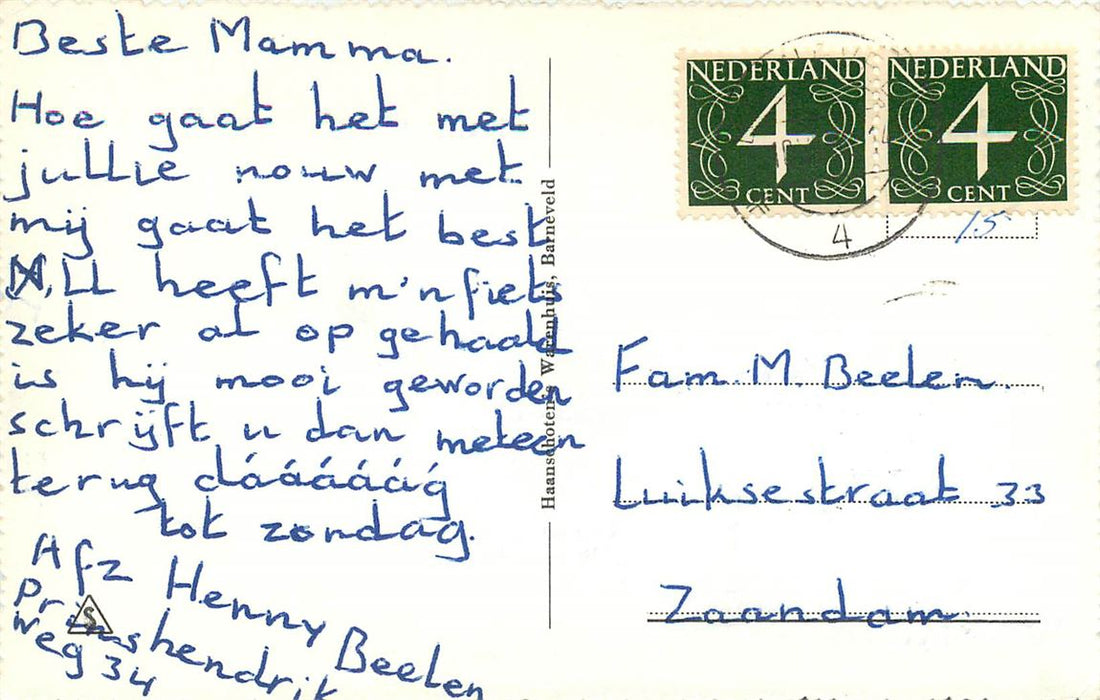 Beste Mamma.
Hoe gaat het met
jullie nouw met
mij gaat het best
LL heeft m'n fiets
zeker al op gehaald
is hij mooi geworden
schrijft u dan meteen
terug dáááááág
tot zondag.
Afz Henny Beelen
Prinshendrik
weg 34
Haanschoten's Warenhuis, Barneveld
NEDERLAND
4
CENT
NEDERLAND
4
CENT
4
15
Fam. M. Beelen.
Luiksestraat 33
Zaandam.
S